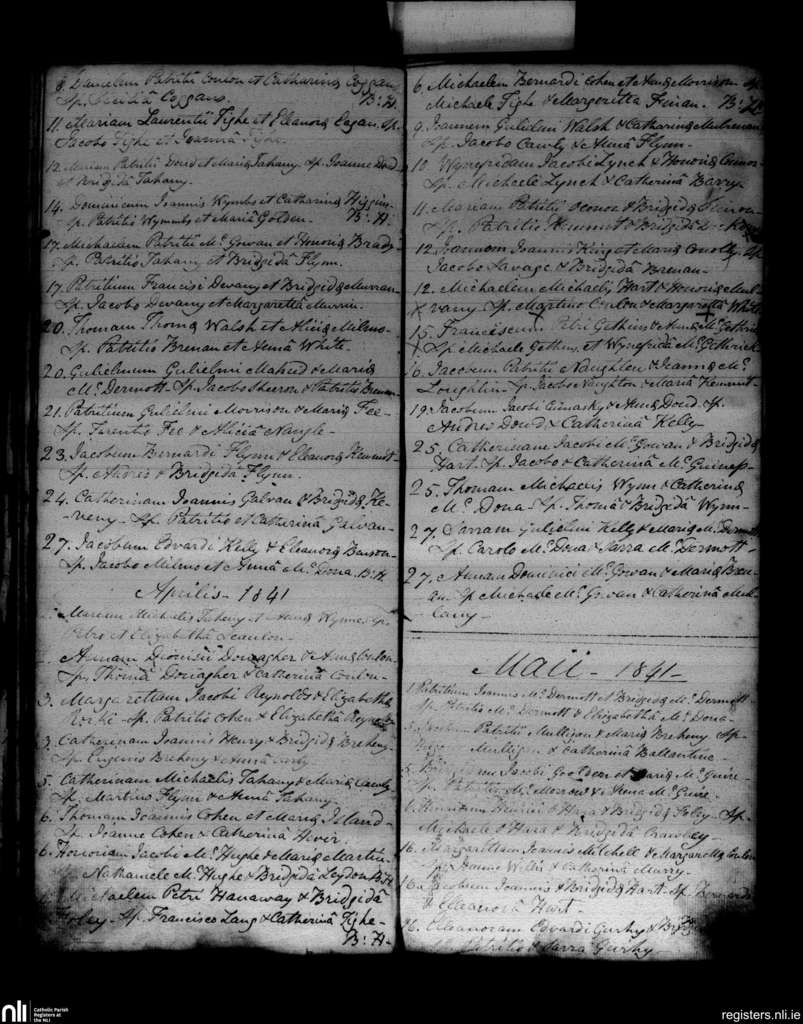 8. Danielem Patritii Conon et Catharinæ Coggans
Sp. Coggans. B: H.
11. Mariam Laurentii Tighe et Eleanoræ Eagan Sp.
Jacobo Tighe et Joannâ
12. Miriam Patritii Dowd et Mariæ Tahany. Sp. Joanne Dowd
et Bridgidâ Tahany.
14. Dominicum Joannis Wymbs et Catharinæ Higgins
Sp. Patritio Wymbs et Mariâ Golden. B: H:
17. Michaelem Patritii Mc Gowan et Honoriæ Brady
Sp. Patritio Tahany et Bridgidâ Flynn.
17. Patritium Francisci Devany et Bridgidæ Murran
Sp. Jacobo Devany et Margarettâ Murrin.
20. Thomam Thomæ Walsh et Aliciæ Milmo
Sp. Patritio Brenan et Annâ White.
20. Gulielmum Gulielmi et Mariæ
Mc Dermott. Sp. Jacobo et Patritio Brenan
21. Patritium Gulielmi Morrison & Mariæ Fee
Sp. Farentio Fee & Aliciâ Nangle
23. Jacobum Bernardi Flynn & Eleanoræ
Sp. Andreo & Bridgidâ Flynn.
24. Catherinam Joannis Galvan & Bridgidæ Ke-
veny. Sp. Patritio et Catherinâ Galvan
27. Jacobum Edvardi Kelly & Eleanoræ Benson
Sp. Jacobo Milmo et Annâ Mc Dona. B: H
Aprilis - 1841
Mariam Michaelis Tahany et Annæ Wynne Sp.
Petro et Elizabethâ Scanlon
Annam Dionisii Donagher & Annæ Conlon
Sp. Thomâ Donagher & Catherinâ Conlon
3. Margarettam Jacobi Reynolds & Elizabethæ
Rorke. Sp. Patritio Cohen & Elizabethâ Reynolds
3. Catherinam Joannis Henry & Bridgidæ Breheny
Sp. Eugenio Breheny & Annâ
5. Catherinam Michaelis Tahany & Mariæ Cawly
Sp. Martino Flynn & Annâ Tahany
6. Thomam Joannis Cohen et Mariæ Island
Sp. Joanne Cohen & Catherinâ
6. Honoriam Jacobi Mc Hughe & Mariæ Martin
Sp. Nathaniele Mc Hughe & Bridgidâ Leydon B: H
Michaelem Petri Hanaway & Bridgidâ
Foley. Sp. Francisco Lang & Catherinâ Tighe
B: H.
6. Michaelem Bernardi Cohen et Annæ Morrison Sp.
Michaele Tighe & Margarittâ B: H
9. Joannem Gulielmi Walsh & Catharinæ Mulrenan
Sp. Jacobo Cawly & Annâ Flynn.
10. Wynefridam Jacobi Lynch & Honoriæ Connor
Sp. Michaele Lynch & Catherinâ Barry.
11. Mariam Patritii Oconor & Bridgidæ
Sp. Patritio & Bridgidâ
12. Joannem Joannis King et Mariæ Conolly Sp.
Jacobo Savage & Bridgidâ Brenan
12. Michaelem Michaelis Hart & Honoriæ Mul-
vany. Sp. Martino Conlon & Margarettâ White
15. Franciscum Petri Gethins & Annæ Mc Gethrick
Sp. Michaele Gethins et Wynefridâ Mc Gethrick
16. Jacobum Patritii Naughton & Joannæ Mc
Loughlin. Sp. Jacobo Naughton & Mariâ
19. Jacobum Jacobi & Annæ Dowd Sp.
Andreo Dowd & Catherinâ Kelly
25. Catherinam Jacobi Mc Gowan & Bridgidæ
Hart. Sp. Jacobo & Catherinâ Mc Guiness
25. Thomam Michaelis Wynn & Catherinæ
Mc Dona. Sp. Thomâ & Bridgidâ Wynn
27. Sarram Gulielmi Kelly & Mariæ Mc Dermott
Sp. Carolo Mc Dona & Sarra Mc Dermott
27. Annam Dominici Mc Gowan & Mariæ Bren-
an. Sp. Michaele Mc Gowan & Catherinâ Mul-
Maii - 1841
1. Patritium Joannis Mc Dermott et Bridgidæ Mc Dermott
Sp. Patritio Mc Dermott & Elizabethâ Mc Dona
Patritii Mulligan & Mariæ Breheny Sp.
Mulligan & Catherinâ Ballantine
Jacobi Goolden et Mariæ Mc Guire
Sp. Patritio Mc Morrow & Anna Mc Guire
Henrici O Hara & Bridgidæ Foley Sp.
Michaele O Hara & Bridgidâ Crawley
16. Margarittam Joannis Mitchell & Margaritæ Conlon
Sp. Joanne Wellis & Catherinâ Murry.
16. Jacobum Joannis & Bridgidæ Hart. Sp. Bernardo
& Eleanorâ Hart.
16. Eleanoram Edvardi Gurhy & Bridgidæ
Sp. Patritio & Sarra Gurhy
nli
Catholic Parish
Registers at
the NLI
registers.nli.ie